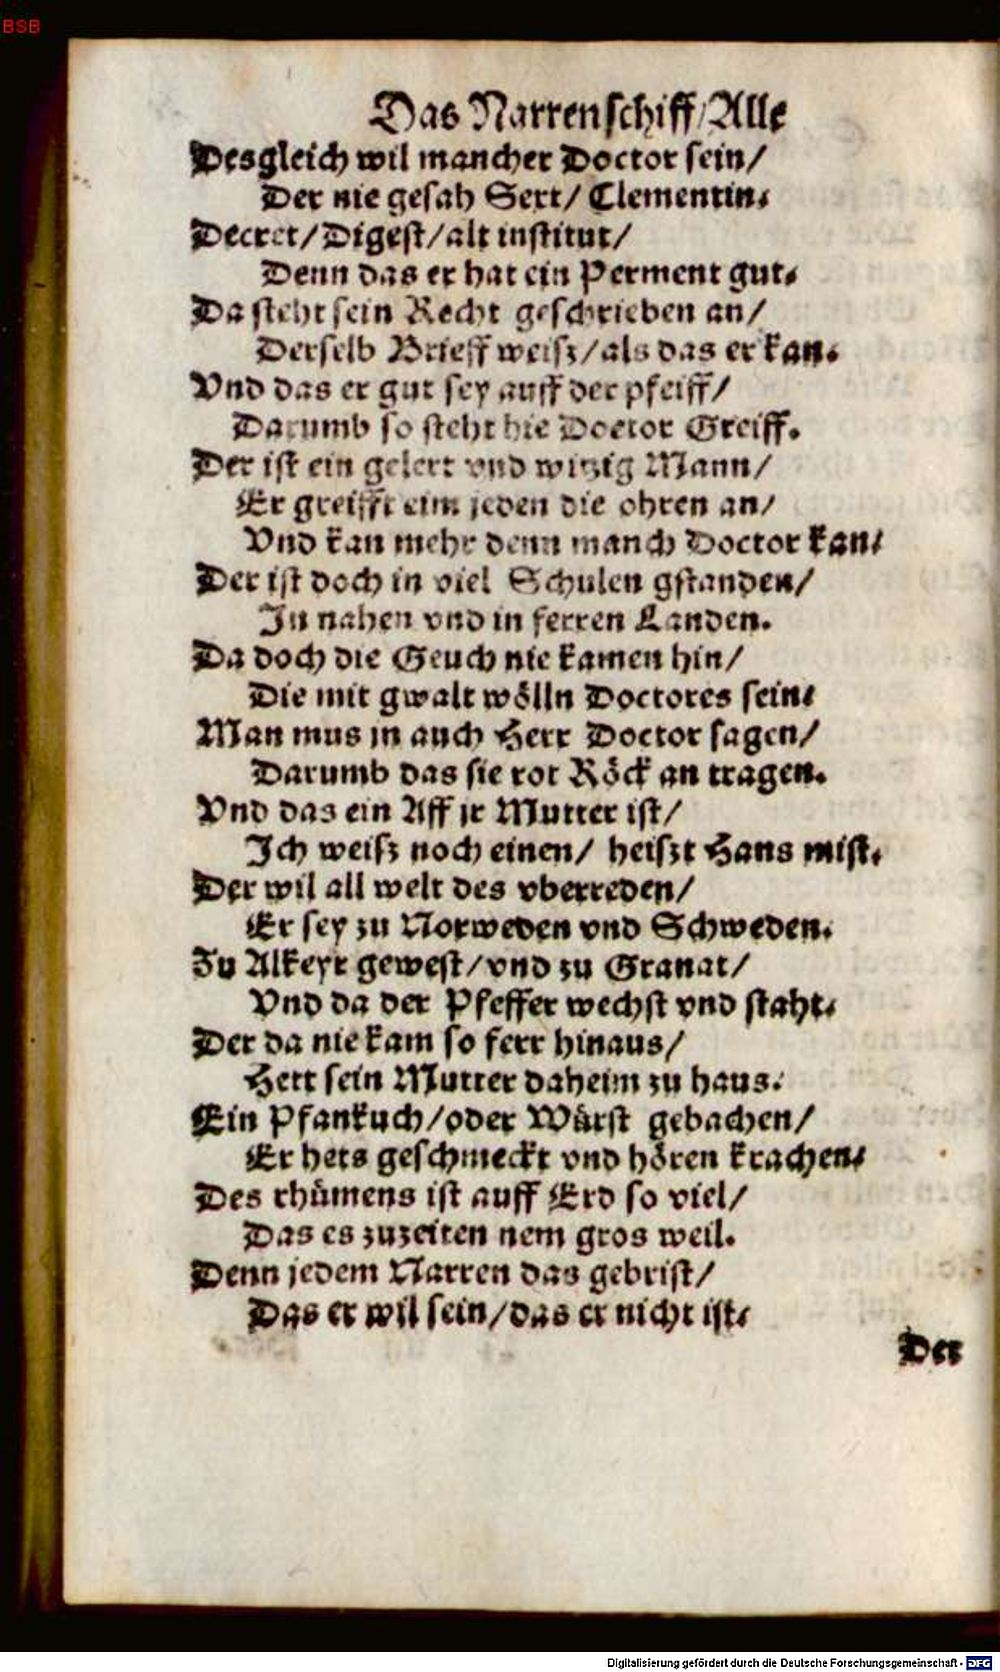 BSB
Das Narrenschiff/Alle
Desgleich wil mancher Doctor sein/
Der nie gesah Sext/ Clementin.
Decret/Digest/alt institut/
Denn das er hat ein Perment gut.
Da steht sein Recht geschrieben an/
Derselb Brieff weisz/als das er kan.
Vnd das er gut sey auff der pfeiff/
Darumb so steht hie Doctor Greiff.
Der ist ein gelert vnd witzig Mann/
Er greifft eim jeden die ohren an/
Vnd kan mehr denn manch Doctor kan/
Der ist doch in viel Schulen gstanden/
In nahen vnd in ferren Landen.
Da doch die Geuch nie kamen hin/
Die mit gwalt wölln Doctores sein/
Man mus jn auch Herr Doctor sagen/
Darumb das sie rot Röck an tragen.
Vnd das ein Aff jr Mutter ist/
Ich weisz noch einen/ heiszt Hans mist.
Der wil all welt des vberreden/
Er sey zu Norweden vnd Schweden.
Zu Alkeyr gewest/vnd zu Granat/
Vnd da der Pfeffer wechst vnd staht.
Der da nie kam so ferr hinaus/
Hett sein Mutter daheim zu haus.
Ein Pfankuch/oder Würst gebachen/
Er hets geschmeckt vnd hören krachen.
Des rhümens ist auff Erd so viel/
Das es zuzeiten nem gros weil.
Denn jedem Narren das gebrist/
Das er wil sein/das er nicht ist.
Der
Digitalisierung gefördert durch die Deutsche Forschungsgemeinschaft - DFG